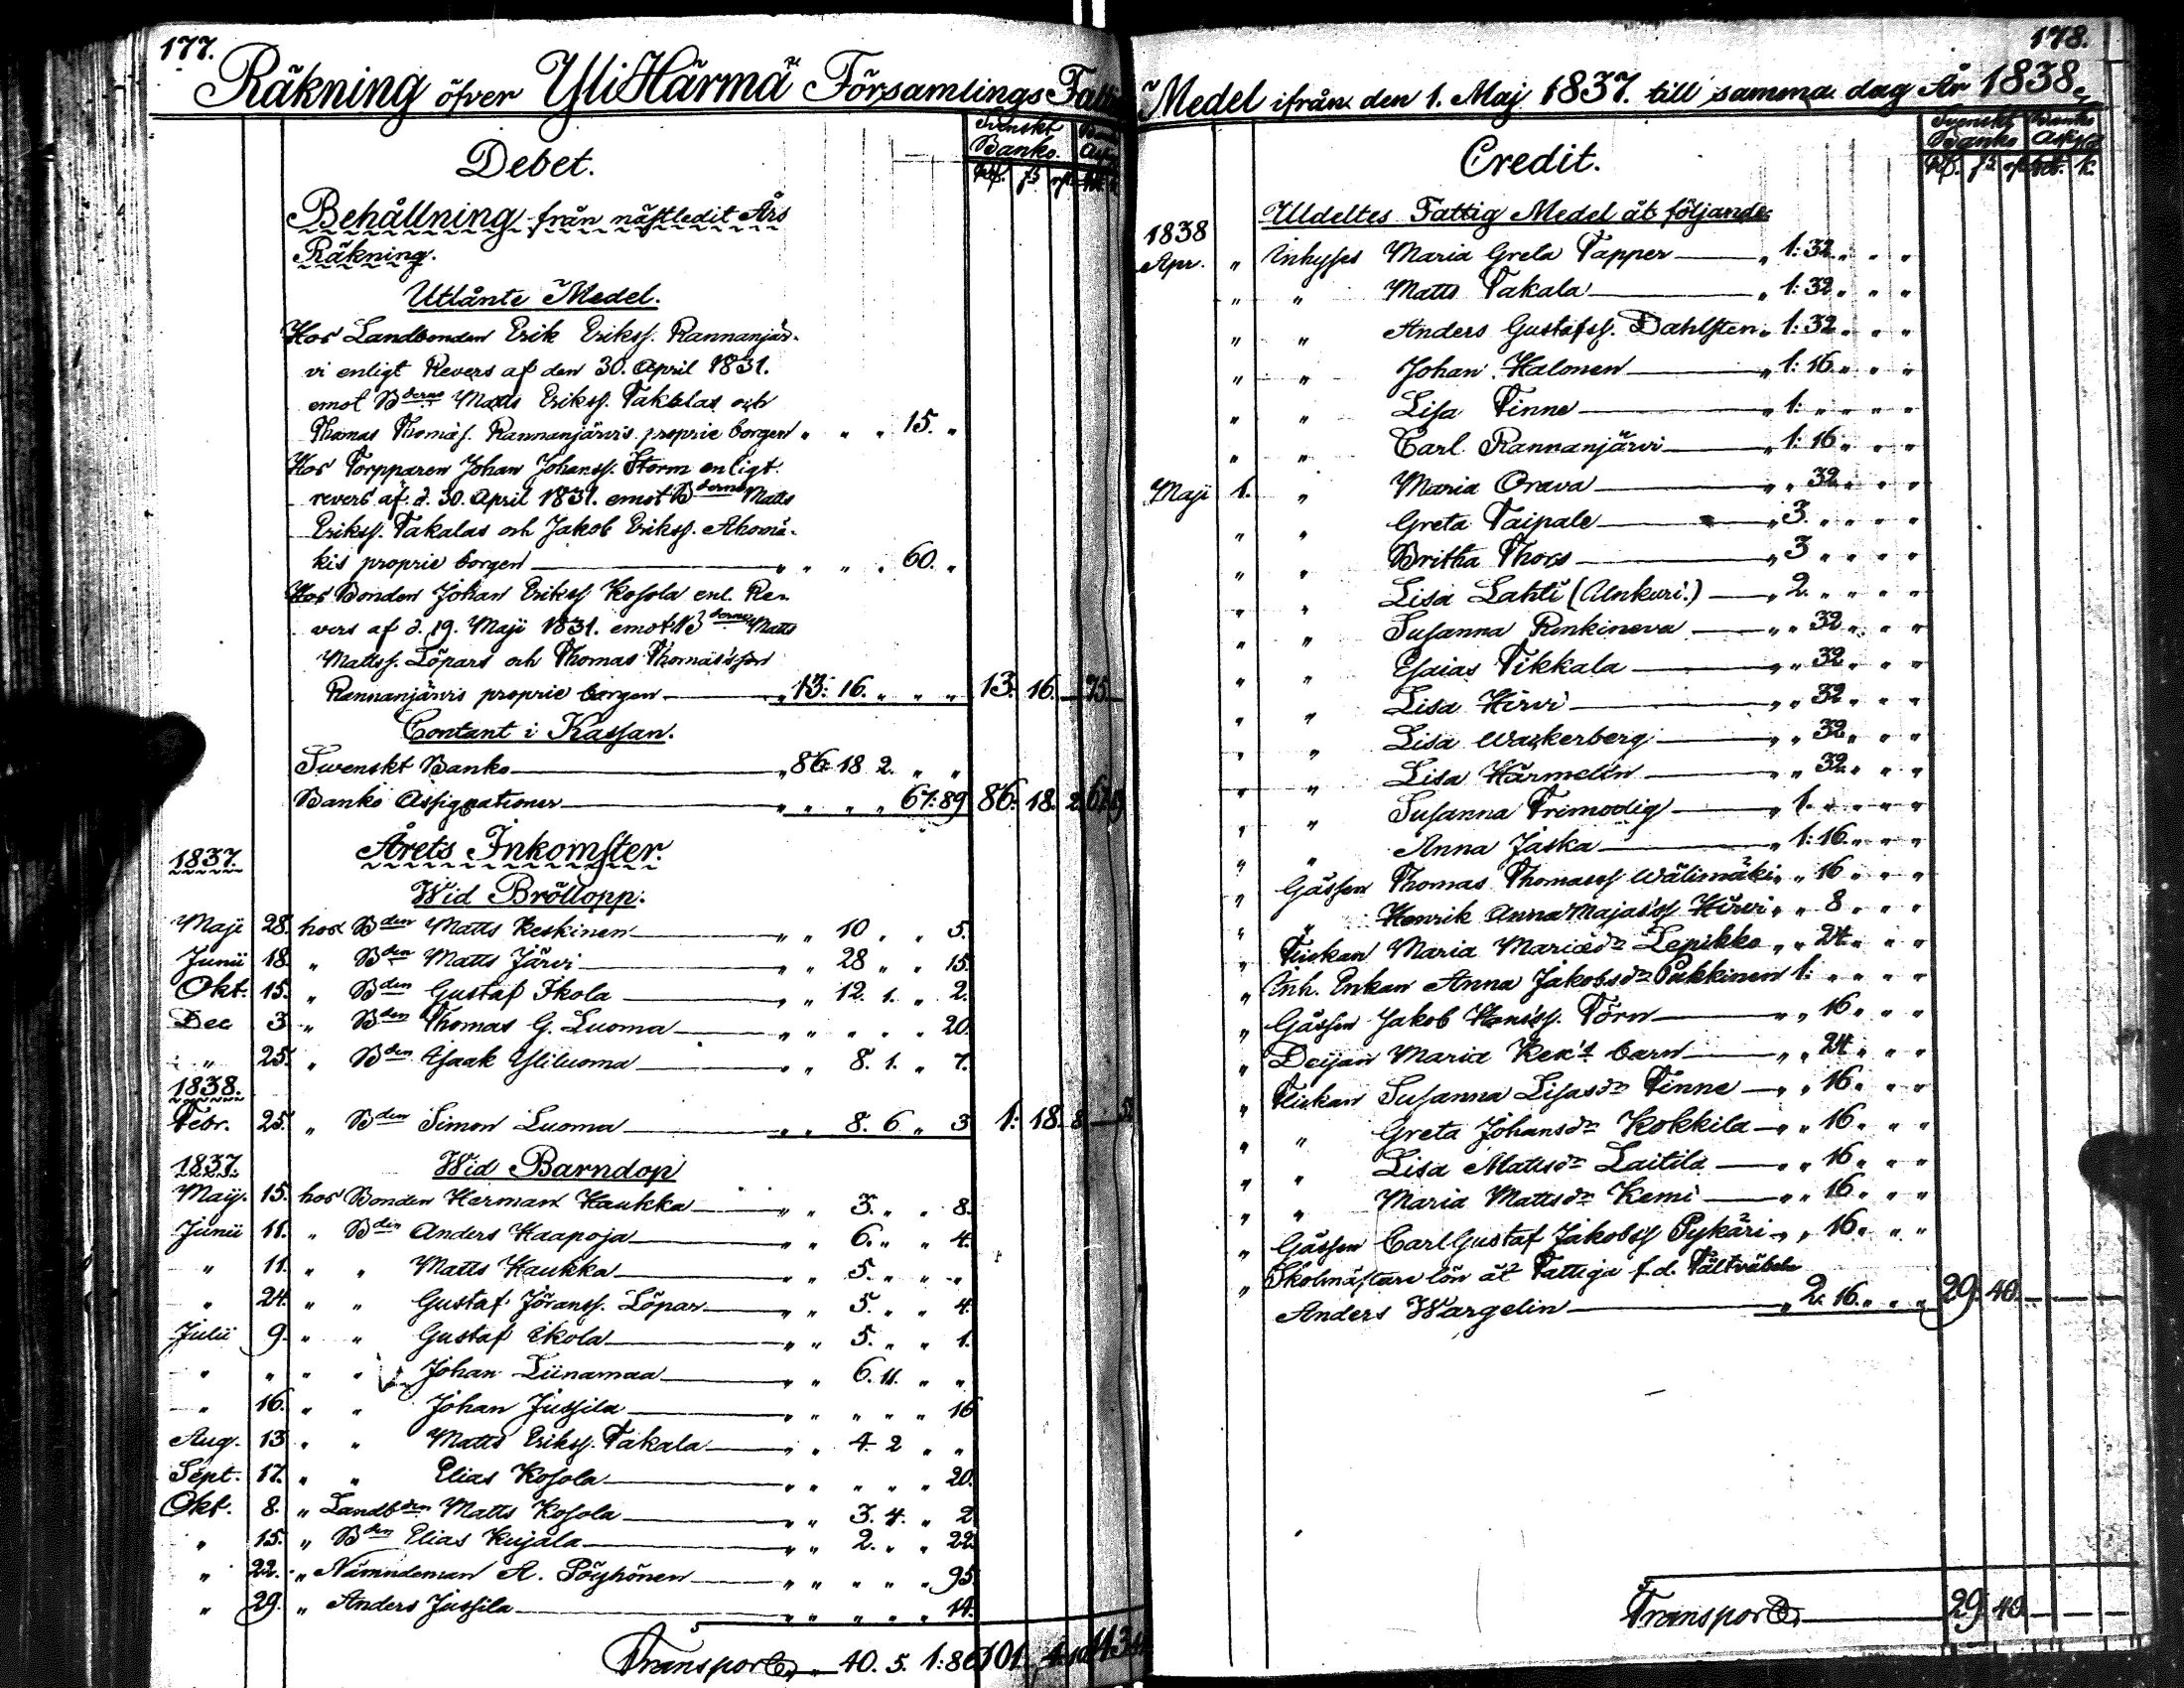 177.
Räkning öfver YliHärmä Församlings
Debet.
Svenskt
Banko.
Behållning från nästledit Års
Räkning.
Utlånte Medel.
Hos Landbonden Erik Erikss. Rannanjär-
vi enligt Revers af den 30. April 1831.
emot Bderne Matts Erikss. Takalas och
Thomas Thomäs. Rannanjärvis proprie borgen " " " 15. "
Hos Torpparen Johan Johanss. Storm enligt
revers af d. 30 April 1831. emot Bderne Matts
Erikss. Takalas och Jakob Erikss. Ahomä-
kis proprie borgen " " " " 60. "
Hos Bonden Johan Erikss Kosola enl. Re-
vers af d. 19. Maji 1831. emot Bderne Matts
Mattss. Löpars och Thomas Thomäs'son
Rannanjärvis proprie borgen " 13: 16. " " " 13. 16. — 75 —
Contant i Kassan.
Swenskt Banko " 86: 18 2. " "
Banko Assignationer " " " " 67: 89 86. 18. 2.
1837. Årets Inkomster.
Wid Bröllopp.
Maji 28. hos Bden Matts Keskinen " " 10 " " 5.
Junii 18. " Bden Matts Järvi " " 28 " " 15.
Okt. 15. " Bden Gustaf Ikola " " 12. 1. " 2.
Dec 3 " Bden Thomas G. Luoma " " " " " 20.
" 25. " Bden Isaak Yliluoma " " 8. 1. " 7.
1838.
Febr. 25. " Bden Simon Luoma " " 8. 6 " 3 1: 18. 8 — 52
1837. Wid Barndop
Maij. 15. hos Bonden Herman Haukka " " 3. " " 8.
Junii 11. " Bden Anders Haapoja " " 6. " " 4.
" 11. " " Matts Haukka " " 5. " " "
" 24. " " Gustaf Jöranss. Löpar " " 5. " " 4.
Julii 9. " " Gustaf Ikola " " 5. " " 1.
" " " " Johan Liinamaa " " 6. 11. " "
" 16. " " Johan Jussila " " " " " 16
Aug. 13 " " Matts Erikss. Takala " " 4. 2 " "
Sept. 17. " " Elias Kosola " " " " " 20.
Okt. 8. " Landbden Matts Kosola " " 3. 4. " 2
" 15. " Bden Elias Kujala " " 2. " " 22.
" 22. " Nämndeman A. Pöyhönen " " " " " 95.
" 29. " Anders Jussila " " " " " 14.
Transport " 40. 5. 1: 86 101
178.
Medel ifrån den 1. Maj 1837. till samma dag År 1838.
Credit.
Svenskt Banko
Banko Assign
Utdeltes Fattig Medel åt följande:
1838
Apr. " Inhyses Maria Greta Tapper " 1: 32. " " "
" " Matts Takala " 1: 32 " " "
" " Anders Gustafss. Dahlsten " 1: 32 " " "
" " Johan Halonen " 1: 16 " " "
" " Lisa Finne " 1: " " " "
" " Carl Rannanjärvi " 1: 16 " " "
Maji 1. " Maria Orava " " 32 " " "
" " Greta Taipale " 3. " " " "
" " Britha Thors " 3 " " " "
" " Lisa Lahti (Unkuri.) " 2. " " " "
" " Susanna Renkineva " " 32 " " "
" " Esaias Tikkala " " 32. " " "
" " Lisa Hirvi " " 32 " " "
" " Lisa Wackerberg " " 32 " " "
" " Lisa Härmelin " " 32 " " "
" " Susanna Frimodig " 1. " " " "
" " Anna Jaska " 1: 16. " " "
" Gåssen Thomas Thomass Wälimäki " " 16 " " "
" " Henrik Anna Majas's Hirvi " " 8 " " "
" Flickan Maria Mariædr Lepikko " " 24 " " "
" Inh. Enkan Anna Jakobsdr Pukkinen 1: " " " "
" Gåssen Jakob Hariss. Törn " " 16 " " "
" Deijan Maria Kek's barn " " 24 " " "
" Flickan Susanna Lisasdr Finne " " 16 " " "
" " Greta Johansdr Kokkila " " 16 " " "
" " Lisa Mattsdr Laitila " " 16 " " "
" " Maria Mattsdr Kemi " " 16 " " "
" Gåssen Carl Gustaf Jakobss Pykäri " " 16 " " "
" Skolmästare lön åt Fattiga f.d. Fältväbeln
Anders Wargelin " 2. 16. " " " 29. 40. — — —
Transport 29 40 — — —